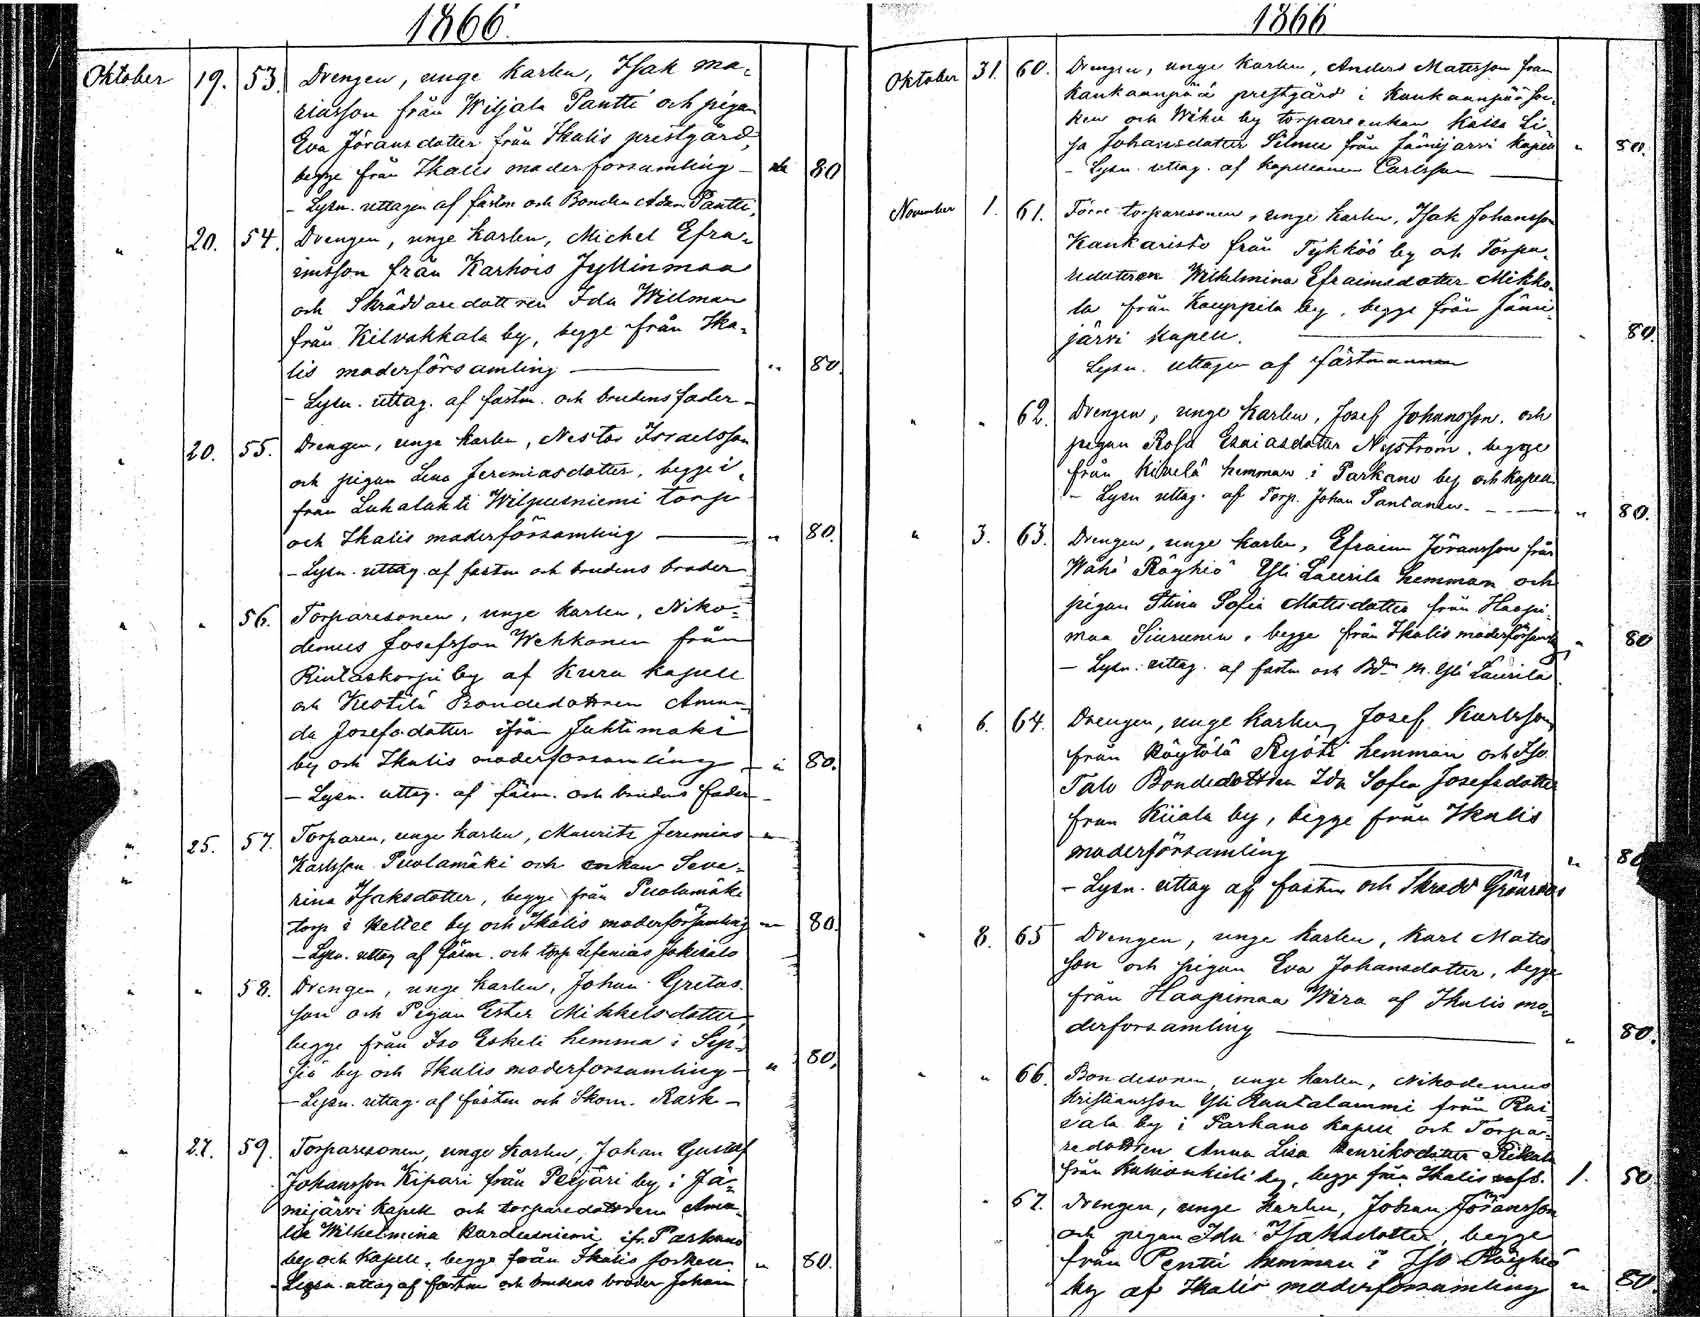 1866.
Oktober 19. 53. Drengen, unge karlen, Isak Ma-
riasson från Wiljala Pantti och pigan
Eva Jöransdotter från Ikalis prestgård,
begge från Ikalis moderforsamling — 80
- Lysn. uttagen af fästm och Bonden Adam Pantti.
" 20. 54. Drengen, unge karlen, Michel Efra-
imsson från Karhois Jyllinmaa
och Skräddaredottren Ida Willman
från Kilvakkala by, begge från Ika-
lis moderförsamling — " 80.
- Lysn. uttag. af fastm. och brudens fader -
" 20. 55. Drengen, unge karlen, Nestor Israelsson
och pigan Lena Jeremiasdotter, begge i
från Luhalahti Wilpusniemi torp
och Ikalis moderförsamling — " 80.
- Lysn. uttag. af fastm och brudens broder
" " 56. Torparesonen, unge karlen, Niko-
demus Josefsson Wehkanen från
Rintaskorpi by af Kuru kapell
och Keotilä Bondedottren Aman-
da Josefsdotter ifrån Juhtimäki
by och Ikalis moderforsamling — " 80.
- Lysn. uttag. af fäsm. och brudens fader -
" 25. 57. Torparen, unge karlen, Mauritz Jeremias
" Karlsson Puolamäki och enkan Seve-
rina Isaksdotter, begge från Puolamäki
torp i Keltee by och Ikalis moderförsamling — 80.
- Lysn. uttag af fäsm. och torp Sefanias Jokisalo
" " 58. Drengen, unge karlen, Johan Gretas-
son och Pigan Ester Mikkelsdotter,
begge från Iso Eskeli hemma i Sip-
siö by och Ikalis moderforsamling — " 80.
- Lysn. uttag. af fästm och Skom. Rask -
" 27. 59. Torparesonen, unge karlen, Johan Gustaf
Johansson Kipari från Peijäri by i Jä-
mijärvi kapell och torparedottren Ama-
lia Wilhelmina Karduniemi ifr. Parkano
by och kapell, begge från Ikalis socken. " 80.
- Lysn. uttag af fastm och brudens broder Johan
1866
Oktober 31. 60. Drengen, unge karlen, Anders Matsson från
Kankaanpää prestgård i Kankaanpää soc-
ken och Wihu by torpareenkan Kaisa Li-
sa Johansdotter Silmu från Jämijärvi kapell " 80.
- Lysn. uttag. af kapellanen Carlsson —
November 1. 61. Förre torparesonen, unge karlen, Isak Johansson
Kankaristo från Tykköö by och Torpa-
redottren Wilhelmina Efraimsdotter Mikko-
la från Kauppila by, begge från Jämi-
järvi kapell. — " 80.
Lysn. uttagen af fästmannen
" " 62. Drengen, unge karlen, Josef Johansson, och
pigan Rosa Esaiasdotter Nyström, begge
från Kivelä hemman i Parkano by och kapell.
- Lysn uttag. af Torp. Johan Santanen. — " 80.
" 3. 63. Drengen, unge karlen, Efraim Jöransson från
Wähä Röyhiö Yli Laurila hemman och
pigan Stina Sofia Mattsdotter från Haapi-
maa Siurunen, begge från Ikalis moderförsamlg " 80
- Lysn. uttag. af fastm och Bdn M. Yli Laurila
" 6. 64. Drengen, unge karlen, Josef Karlsson
från Röytölä Ryöti hemman och Iso
Talo Bondedottren Ida Sofia Josefsdotter
från Kiiala by, begge från Ikalis
moderförsamling — " 80
- Lysn. uttag af fastm och Skradd Grönroos
" 8. 65 Drengen, unge karlen, Karl Mats
son och pigan Eva Johansdotter, begge
från Haapimaa Wira af Ikalis mo-
derforsamling — " 80.
" " 66. Bondesonen, unge karlen, Nikodemus
Kristiansson Yli Rantalammi från Rai-
vala by i Parkano kapell och Torpa-
redottren Anna Lisa Henriksdotter
från by, begge från Ikalis mfs. 1. 50
" 67. Drengen, unge karlen, Johan Jöransson
och pigan Ida Isaksdotter, begge
från Pentti hemman i Iso Röyhiö
by af Ikalis moderforsamling " 80.